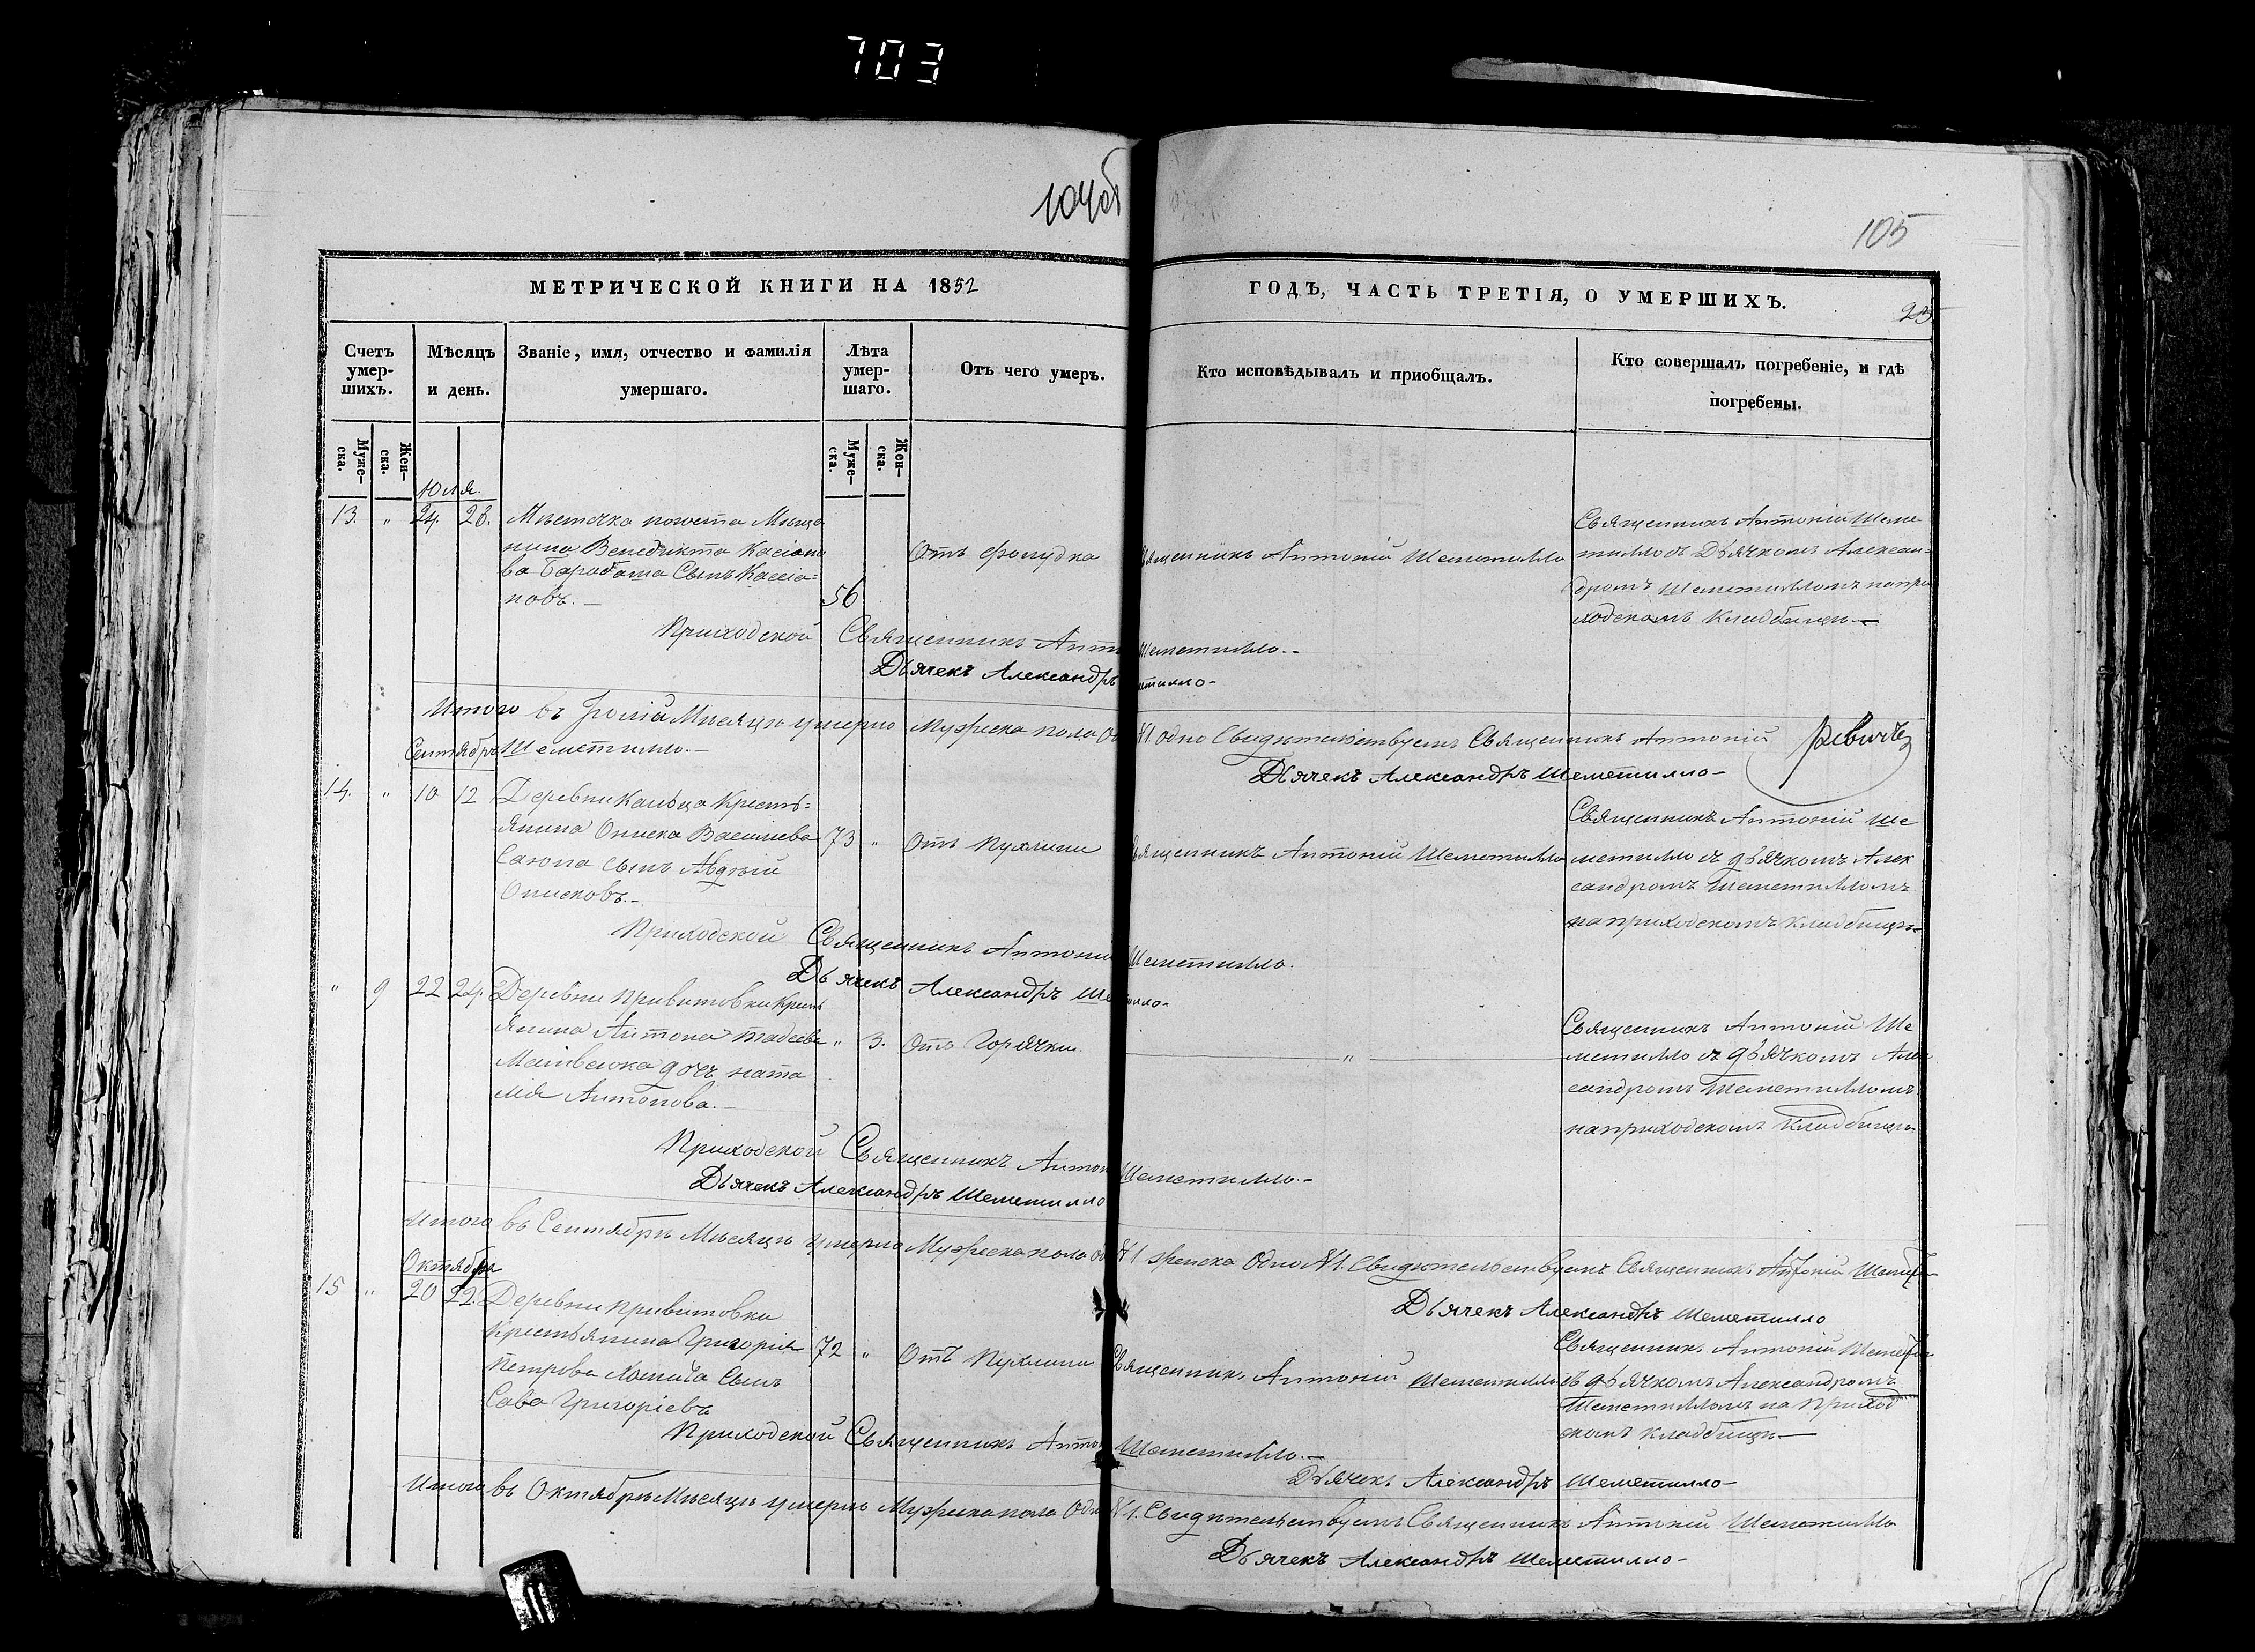 703
104об
105
МЕТРИЧЕСКОЙ КНИГИ НА 1852
ГОДЪ, ЧАСТЬ ТРЕТІЯ, О УМЕРШИХЪ.
23
Счетъ умер-шихъ.
Мѣсяцъ и день.
Званіе, имя, отчество и фамилія умершаго.
Лѣта умер-шаго.
Отъ чего умеръ.
Кто исповѣдывалъ и приобщалъ.
Кто совершалъ погребеніе, и гдѣ погребены.
Муже-ска.
Жен-ска.
Муже-ска.
Жен-ска.
Юля.
13. " 24. 26. Мѣстечка Мѣща
нина Венедикта Касіано
ва Сынъ Кассіа=
новъ.—
56
Отъ
Священникъ Антоній Шеметилло
Священникъ Антоній Шеме-
тилло съ Дьячкомъ Алексан=
дромъ Шеметилломъ на при
ходскомъ кладбищѣ.—
Приходской Священникъ Анто Шеметилло.-
Дьячекъ Александръ тилло-
Итого въ Іюлѣ Мѣсяцѣ умерло Мужеска пола од №1 одно Свидѣтельствуемъ Священникъ Антоній
Шеметилло.—
Дьячекъ Александръ Шеметилло-
Сентябрь
14. " 10 12 Деревни Кресть=
янина Василіева
сынъ
73 " Отъ Пухлини
Священникъ Антоній Шеметилло
Священникъ Антоній Ше
метилло съ дьячкомъ Алек
сандромъ Шеметилломъ
на приходскомъ кладбищѣ-
Приходской Священникъ Антоній Шеметилло.
Дьячекъ Александръ Ше илло-
" 9 22 24. Деревни Привитовки Кресть
янина Антона Тадеева
Матвеюка дочь Ната
лія Антонова.—
" 3. Отъ Горячки.
"
Священникъ Антоній Ше
метилло съ дьячкомъ Алек
сандромъ Шеметилломъ
на приходскомъ кладбищѣ-
Приходской Священникъ Антон Шеметилло.-
Дьячекъ Александръ Шеметилло
Итого въ Сентябрѣ Мѣсяцѣ умерло Мужеска пола од №1 женска Одно №1. Свидѣтельствуемъ Священникъ Антоній
Дьячекъ Александръ Шеметилло
Октябрь
15 " 20 22. Деревни Привитовки
Крестьянина Григорія
Петрова Сынъ
Сава Григоріевъ
72 " Отъ Пухлини
Священникъ Антоній Шеметилло
Священникъ Антоній
съ дьячкомъ Александромъ
Шеметилломъ на Приход
скомъ кладбищѣ—
Приходской Священникъ Анто Шеметилло.—
Дьячекъ Александръ Шеметилло-
Итого въ Октябрѣ Мѣсяцѣ умерло Мужеска пола Одн №1. Свидѣтельствуемъ Священникъ Антоній Шеметилло
Дьячекъ Александръ Шеметилло-